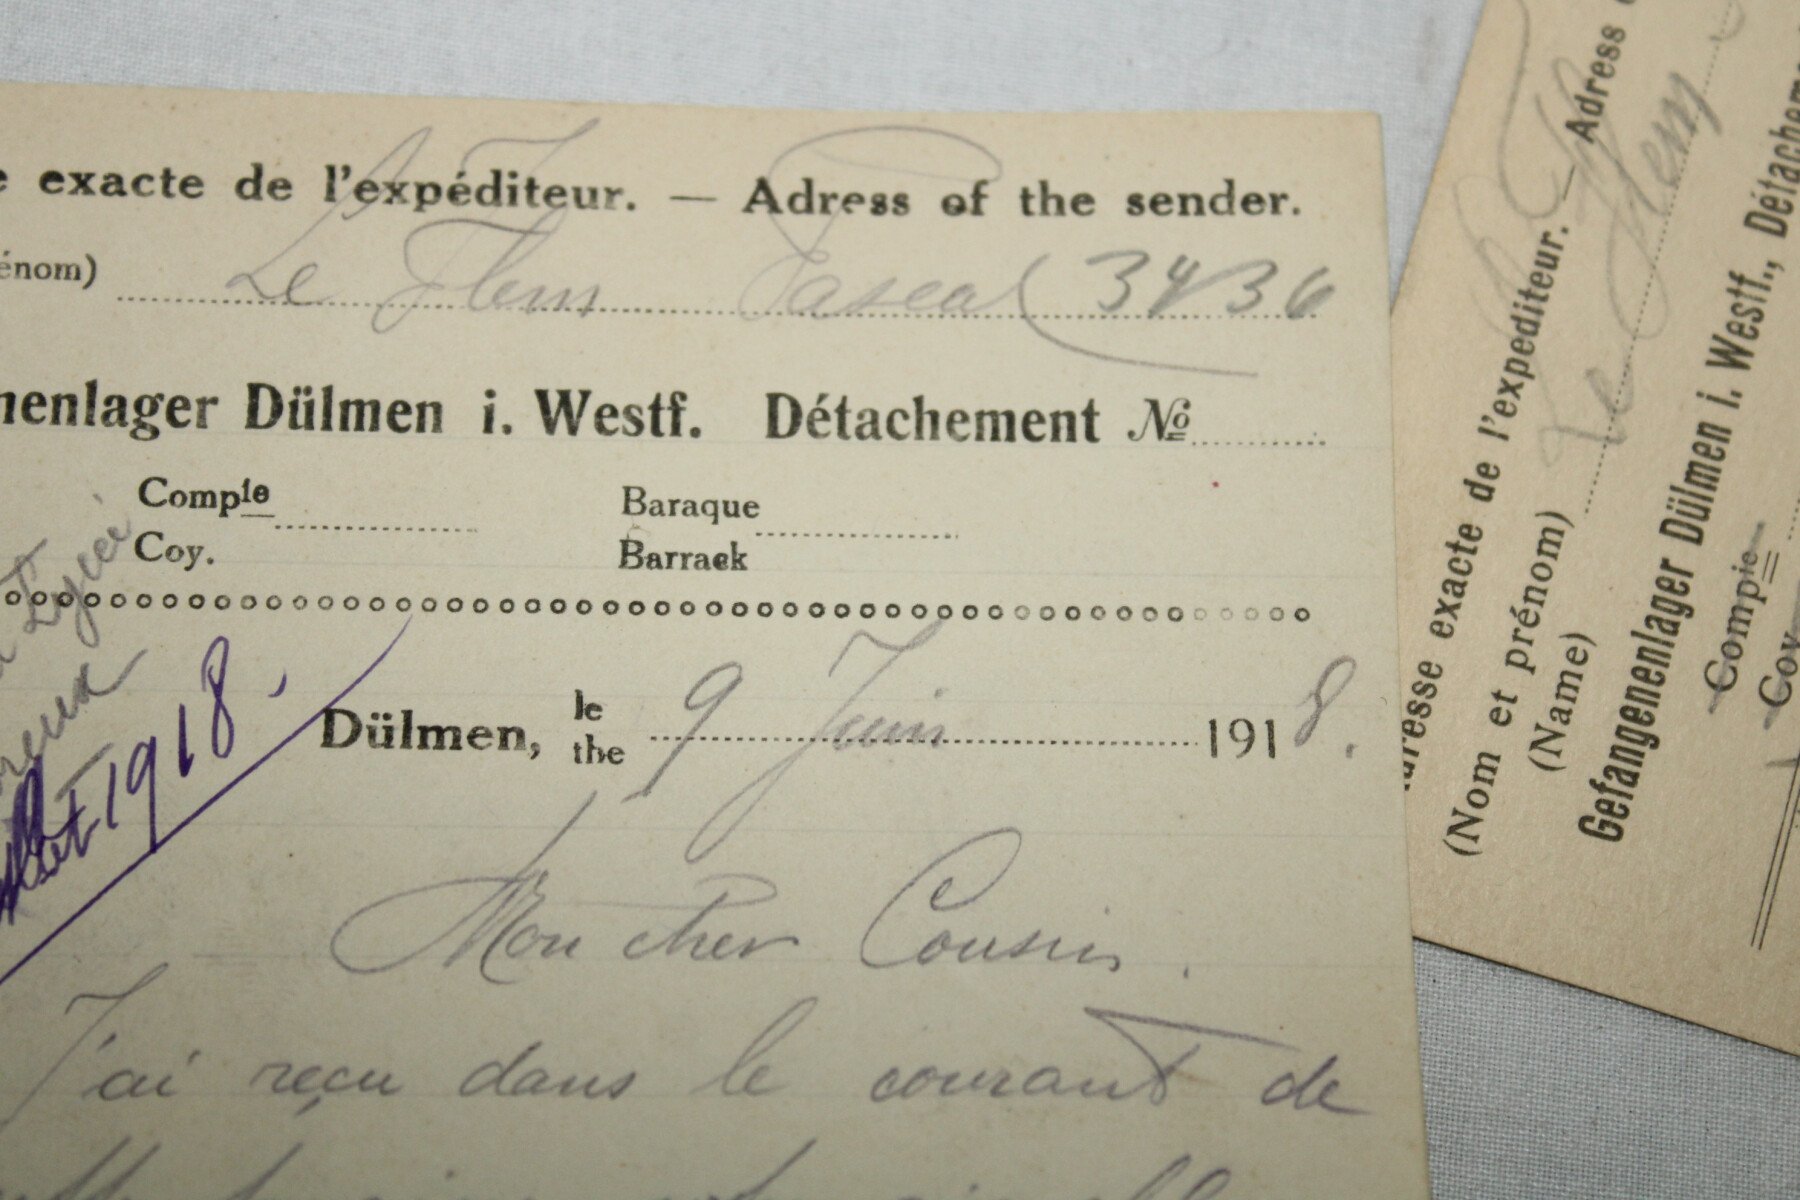 e exacte de l'expéditeur. — Adress of the sender.
énom) Le Flem Pascal 3436
nenlager Dülmen i. Westf. Détachement №
Compie Baraque
Coy. Barrack
Dülmen, le the 9 Juin 1918.
1918.
Mon cher Cousin.
J'ai reçu dans le courant de
Adresse exacte de l'expéditeur. — Adress
(Nom et prénom) Le Flem
(Name)
Gefangenenlager Dülmen i. Westf., Détachem
Compie
Coy